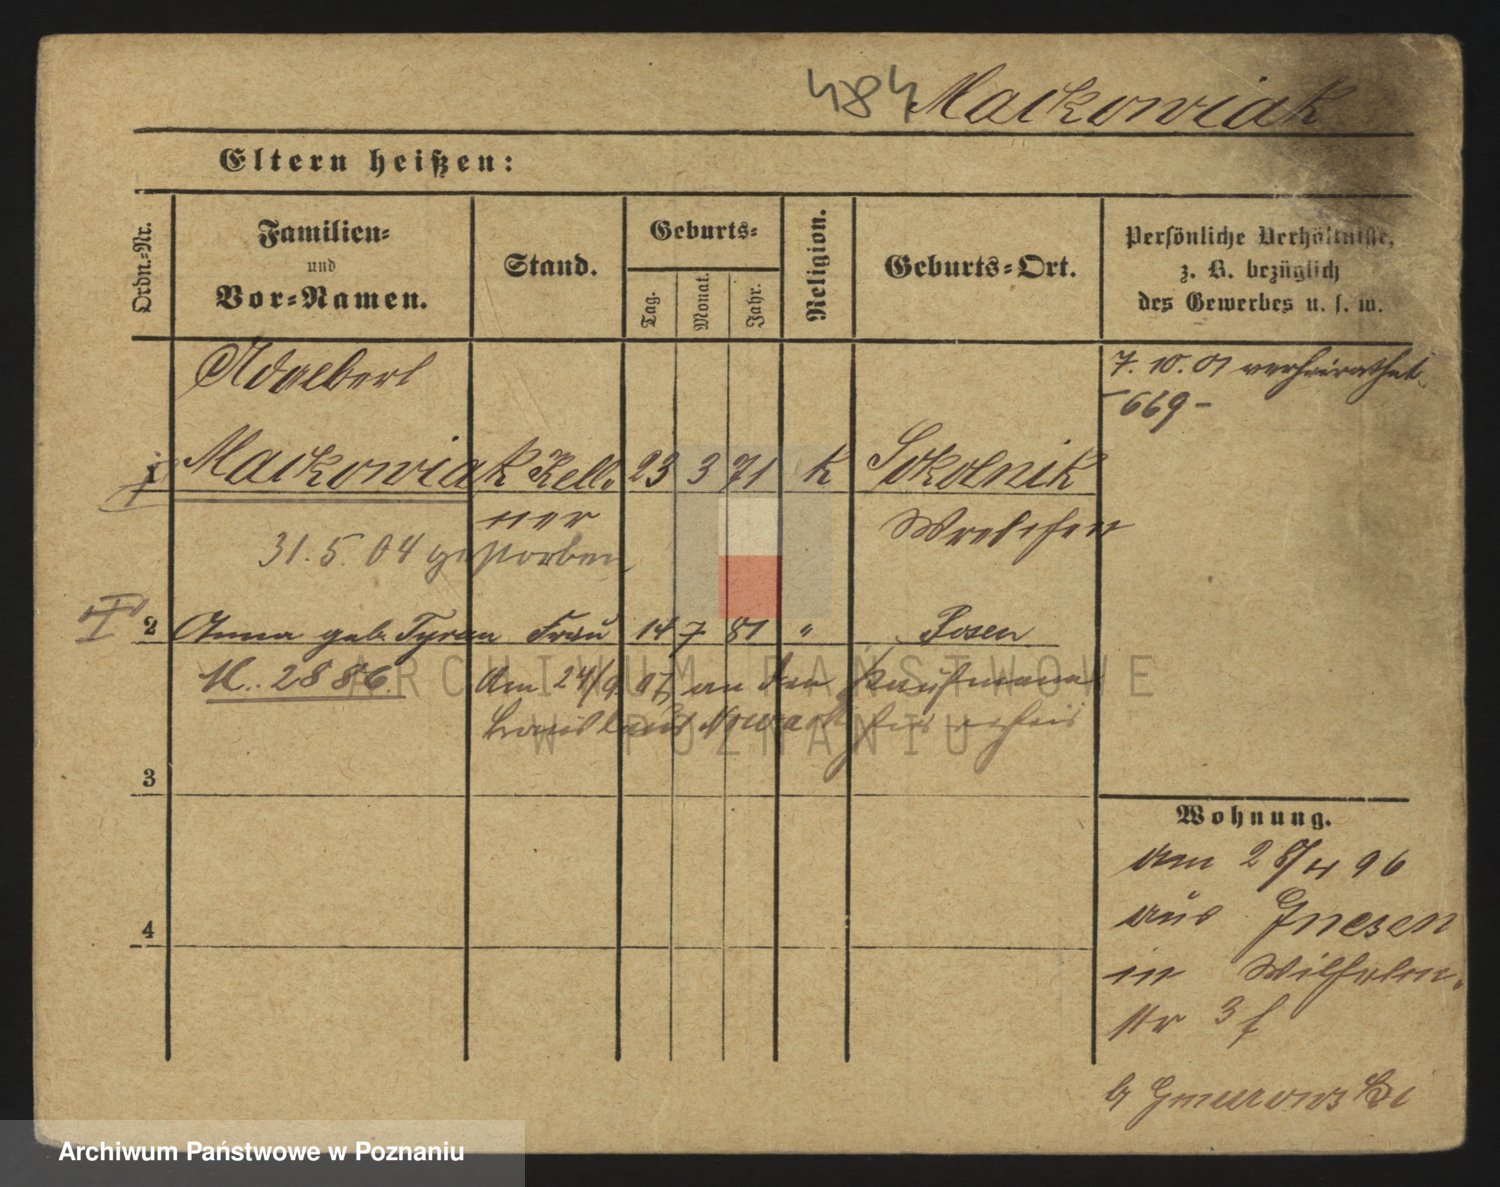 484 Mackowiak
Eltern heißen:
Ordn.-Nr.
Familien-
und
Vor-Namen.
Stand.
Geburts-
Tag.
Monat.
Jahr.
Religion.
Geburts-Ort.
Persönliche Verhältnisse,
z. B. bezüglich
des Gewerbes u. s. w.
Adalbert
7. 10. 01 verheirathet
-669-
1 Mackowiak Kell- 23 3 71 K Sokolnik
ner Wreschen
31. 5. 04 gestorben
I
2 Anna geb. Tyran Frau 14 7 81 " Posen
M. 2886. Am 24/9 07 an den Kaufmann
Nowack
3
4
Wohnung.
am 28/4 96
aus Gnesen
in Wilhelm-
str 3 f
b Gmurowski
ARCHIWUM PAŃSTWOWE
W POZNANIU
Archiwum Państwowe w Poznaniu